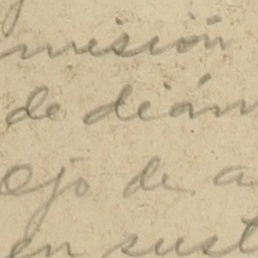 misión
de dián
Ojo de a
en sust